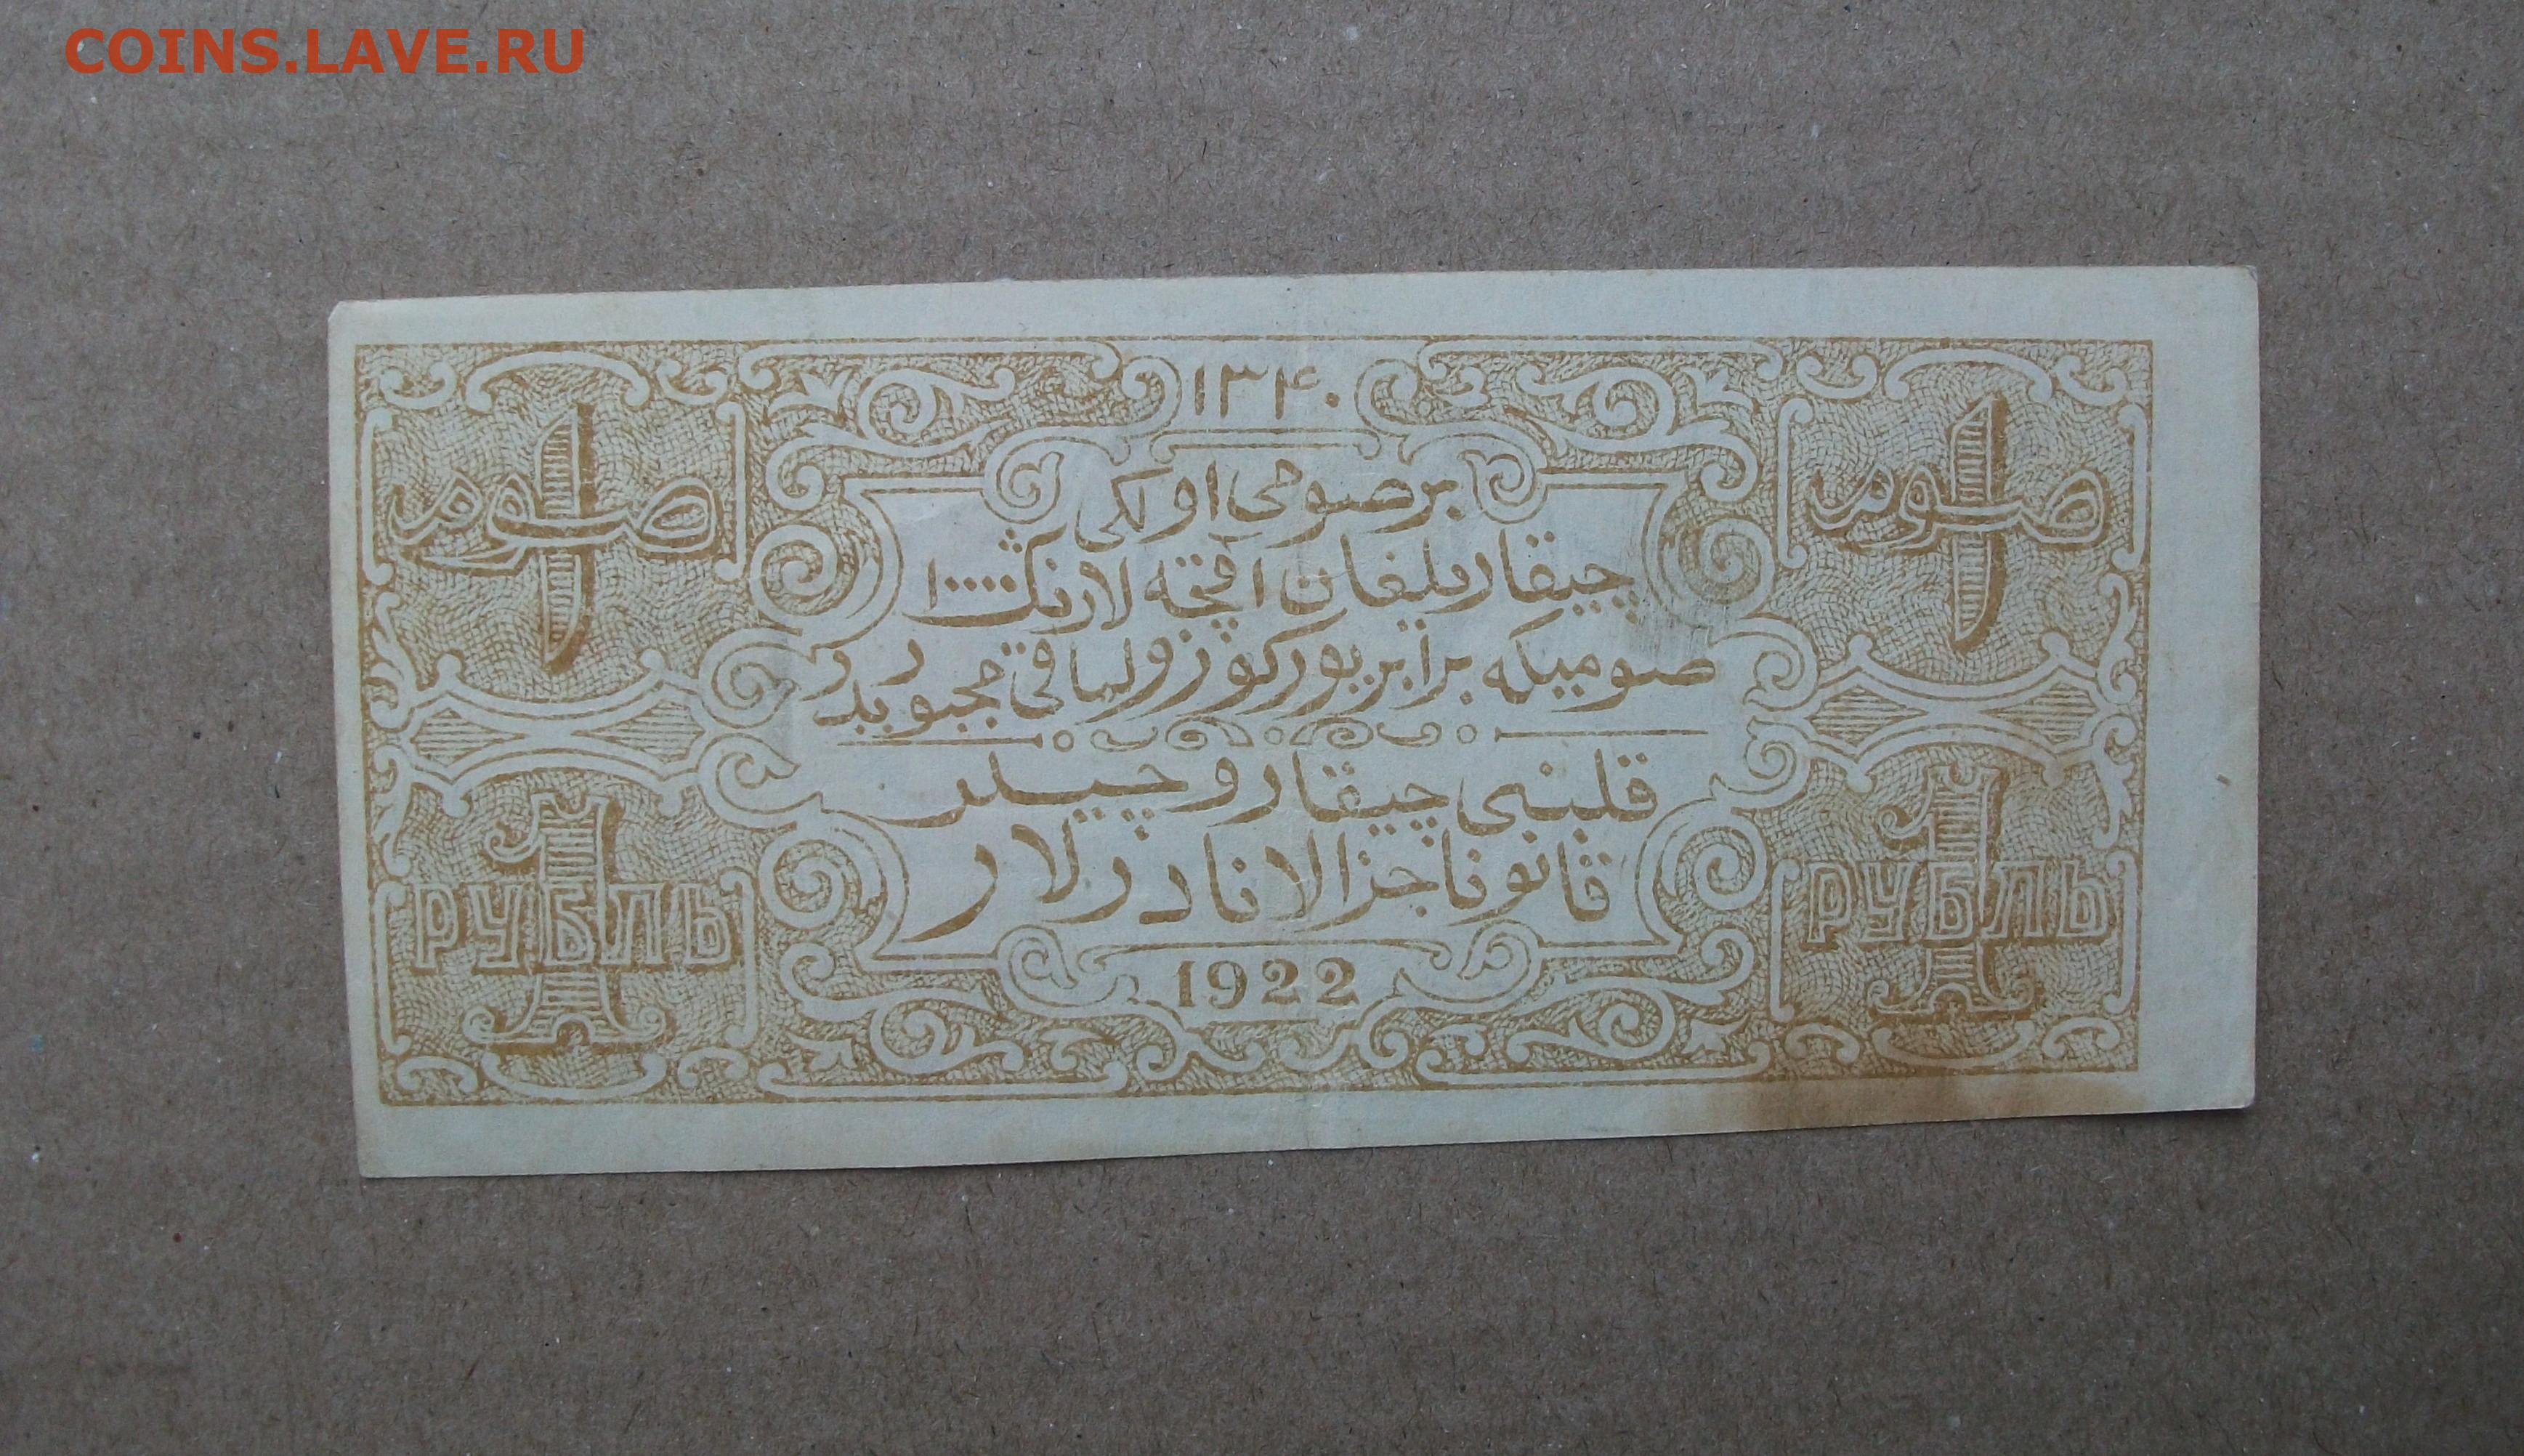 COINS.LAVE.RU
۱۳۴۰
۱ صوم
۱ صوم
بر صومی اولکی
چیقارلیغان آقچه لارنک ۱۰۰۰۰
صومیکه برابر یورکوزولماقی مجبوریدر
قلبنی چیقاروچیلر
قانونا جزالانادرلار
1 РУБЛЬ
1 РУБЛЬ
1922